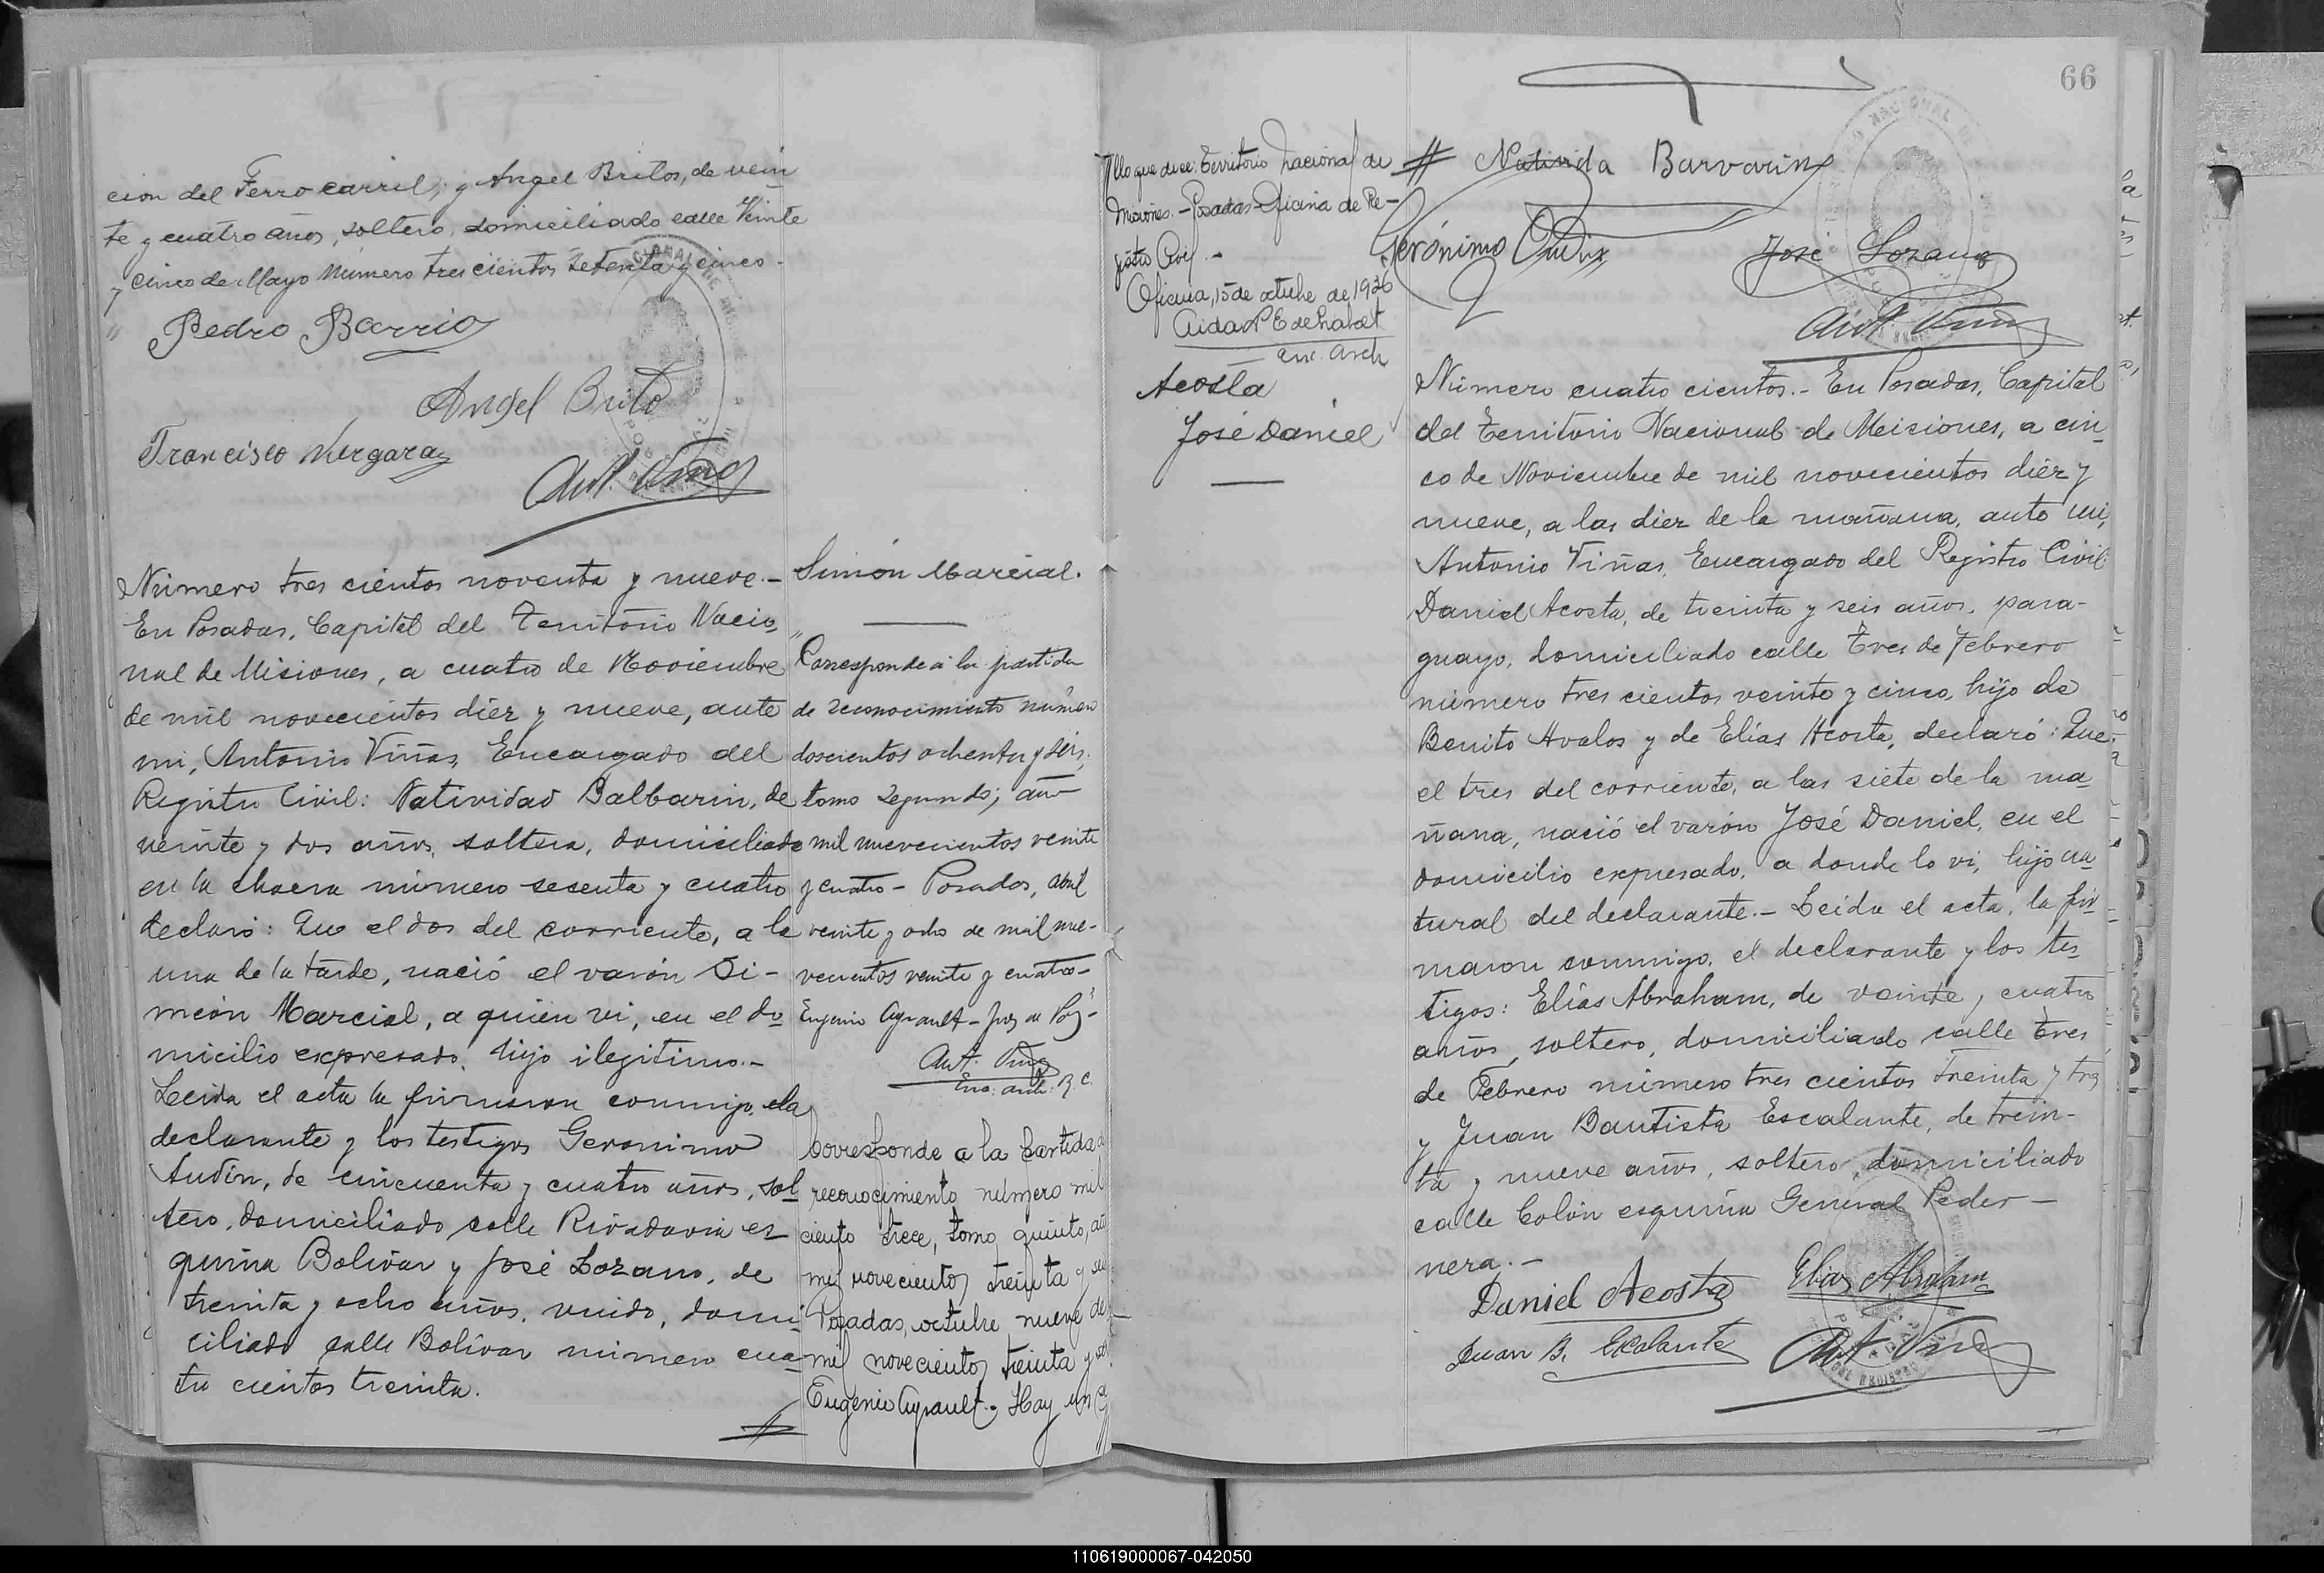 cion del Ferro carril; y Angel Britos, de vein
te y cuatro años, soltero, domiciliado calle Veinte
y cinco de Mayo número tres cientos setenta y cinco.
Pedro Barrios
Angel Brito
Francisco Vergara
Ant. Viñas
Número tres cientos noventa y nueve.-
En Posadas, Capital del Territorio Nacio-
nal de Misiones, a cuatro de Noviembre
de mil novecientos diéz y nueve, ante
mi, Antonio Viñas, Encargado del
Registro Civil: Natividad Balbarin, de
veinte y dos años, soltera, domiciliada
en la chacra número sesenta y cuatro
declaró: Que el dos del corriente, a la
una de la tarde, nació el varón Si-
meón Marcial, a quién vi, en el do-
micilio expresado, hijo ilegitimo.-
Leida el acta la firmaron conmigo, ela
declarante y los testigos Geronimo
Audin, de cincuenta y cuatro años, sol-
tero, domiciliado calle Rivadavia es-
quina Bolivar y José Lozano, de
treinta y ocho años, viudo, domi-
ciliado calle Bolívar número cua-
tro cientos treinta.
Simón Marcial.
Corresponde a la partida
de reconocimiento número
doscientos ochenta y seis,
tomo segundo; año
mil nuevecientos veinte
y cuatro - Posadas, abril
veinte y ocho de mil nue-
vecientos veinte y cuatro-
Eugenio Ayrault - Juez de Paz-
Ant. Viñas
Enc. arch. R. C.
Corresponde a la partida de
reconocimiento número mil
ciento trece, tomo quinto, año
mil novecientos treinta y seis
Posadas, octubre nueve de
mil novecientos treinta y seis
Eugenio Ayrault.- Hay un
66
llo que dice: Territorio Nacional de
Misiones.- Posadas- Oficina de Re-
gistro Civil.-
Oficina, 15 de octubre de 1936
Enc. Arch
Acosta
José Daniel
Natividа Barvarin
Gerónimo Audin
José Lozano
Ant. Viñas
Número cuatro cientos.- En Posadas, Capital
del Territorio Nacional de Misiones, a cin-
co de Noviembre de mil novecientos diéz y
nueve, a las diez de la mañana, ante mi,
Antonio Viñas, Encargado del Registro Civil
Daniel Acosta, de treinta y seis años, para-
guayo, domiciliado calle Tres de Febrero
número tres cientos veinte y cinco, hijo de
Benito Avalos y de Elías Acosta, declaró: Que
el tres del corriente, a las siete de la ma-
ñana, nació el varón José Daniel, en el
domicilio expresado, a donde lo vi, hijo na-
tural del declarante.- Leida el acta, la fir-
maron conmigo, el declarante y los tes-
tigos: Elías Abraham, de veinte y cuatro
años, soltero, domiciliado calle Tres
de Febrero número tres cientos treinta y tres
y Juan Bautista Escalante, de trein-
ta y nueve años, soltero, domiciliado
calle Colón esquina General Peder-
nera.-
Daniel Acosta
Elias Abraham
Juan B. Escalante
Ant. Viñas
110619000067-042050